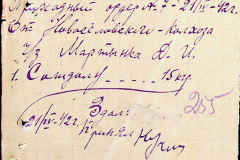 Приходный ордер № 7 - 21/IV-42г.
От Новосёловского колхоза
ч/з Мартынка Д. И.
1. Солидолу - - - - 15 кгр.
Сдал:
255
21/IV-42г. Принял